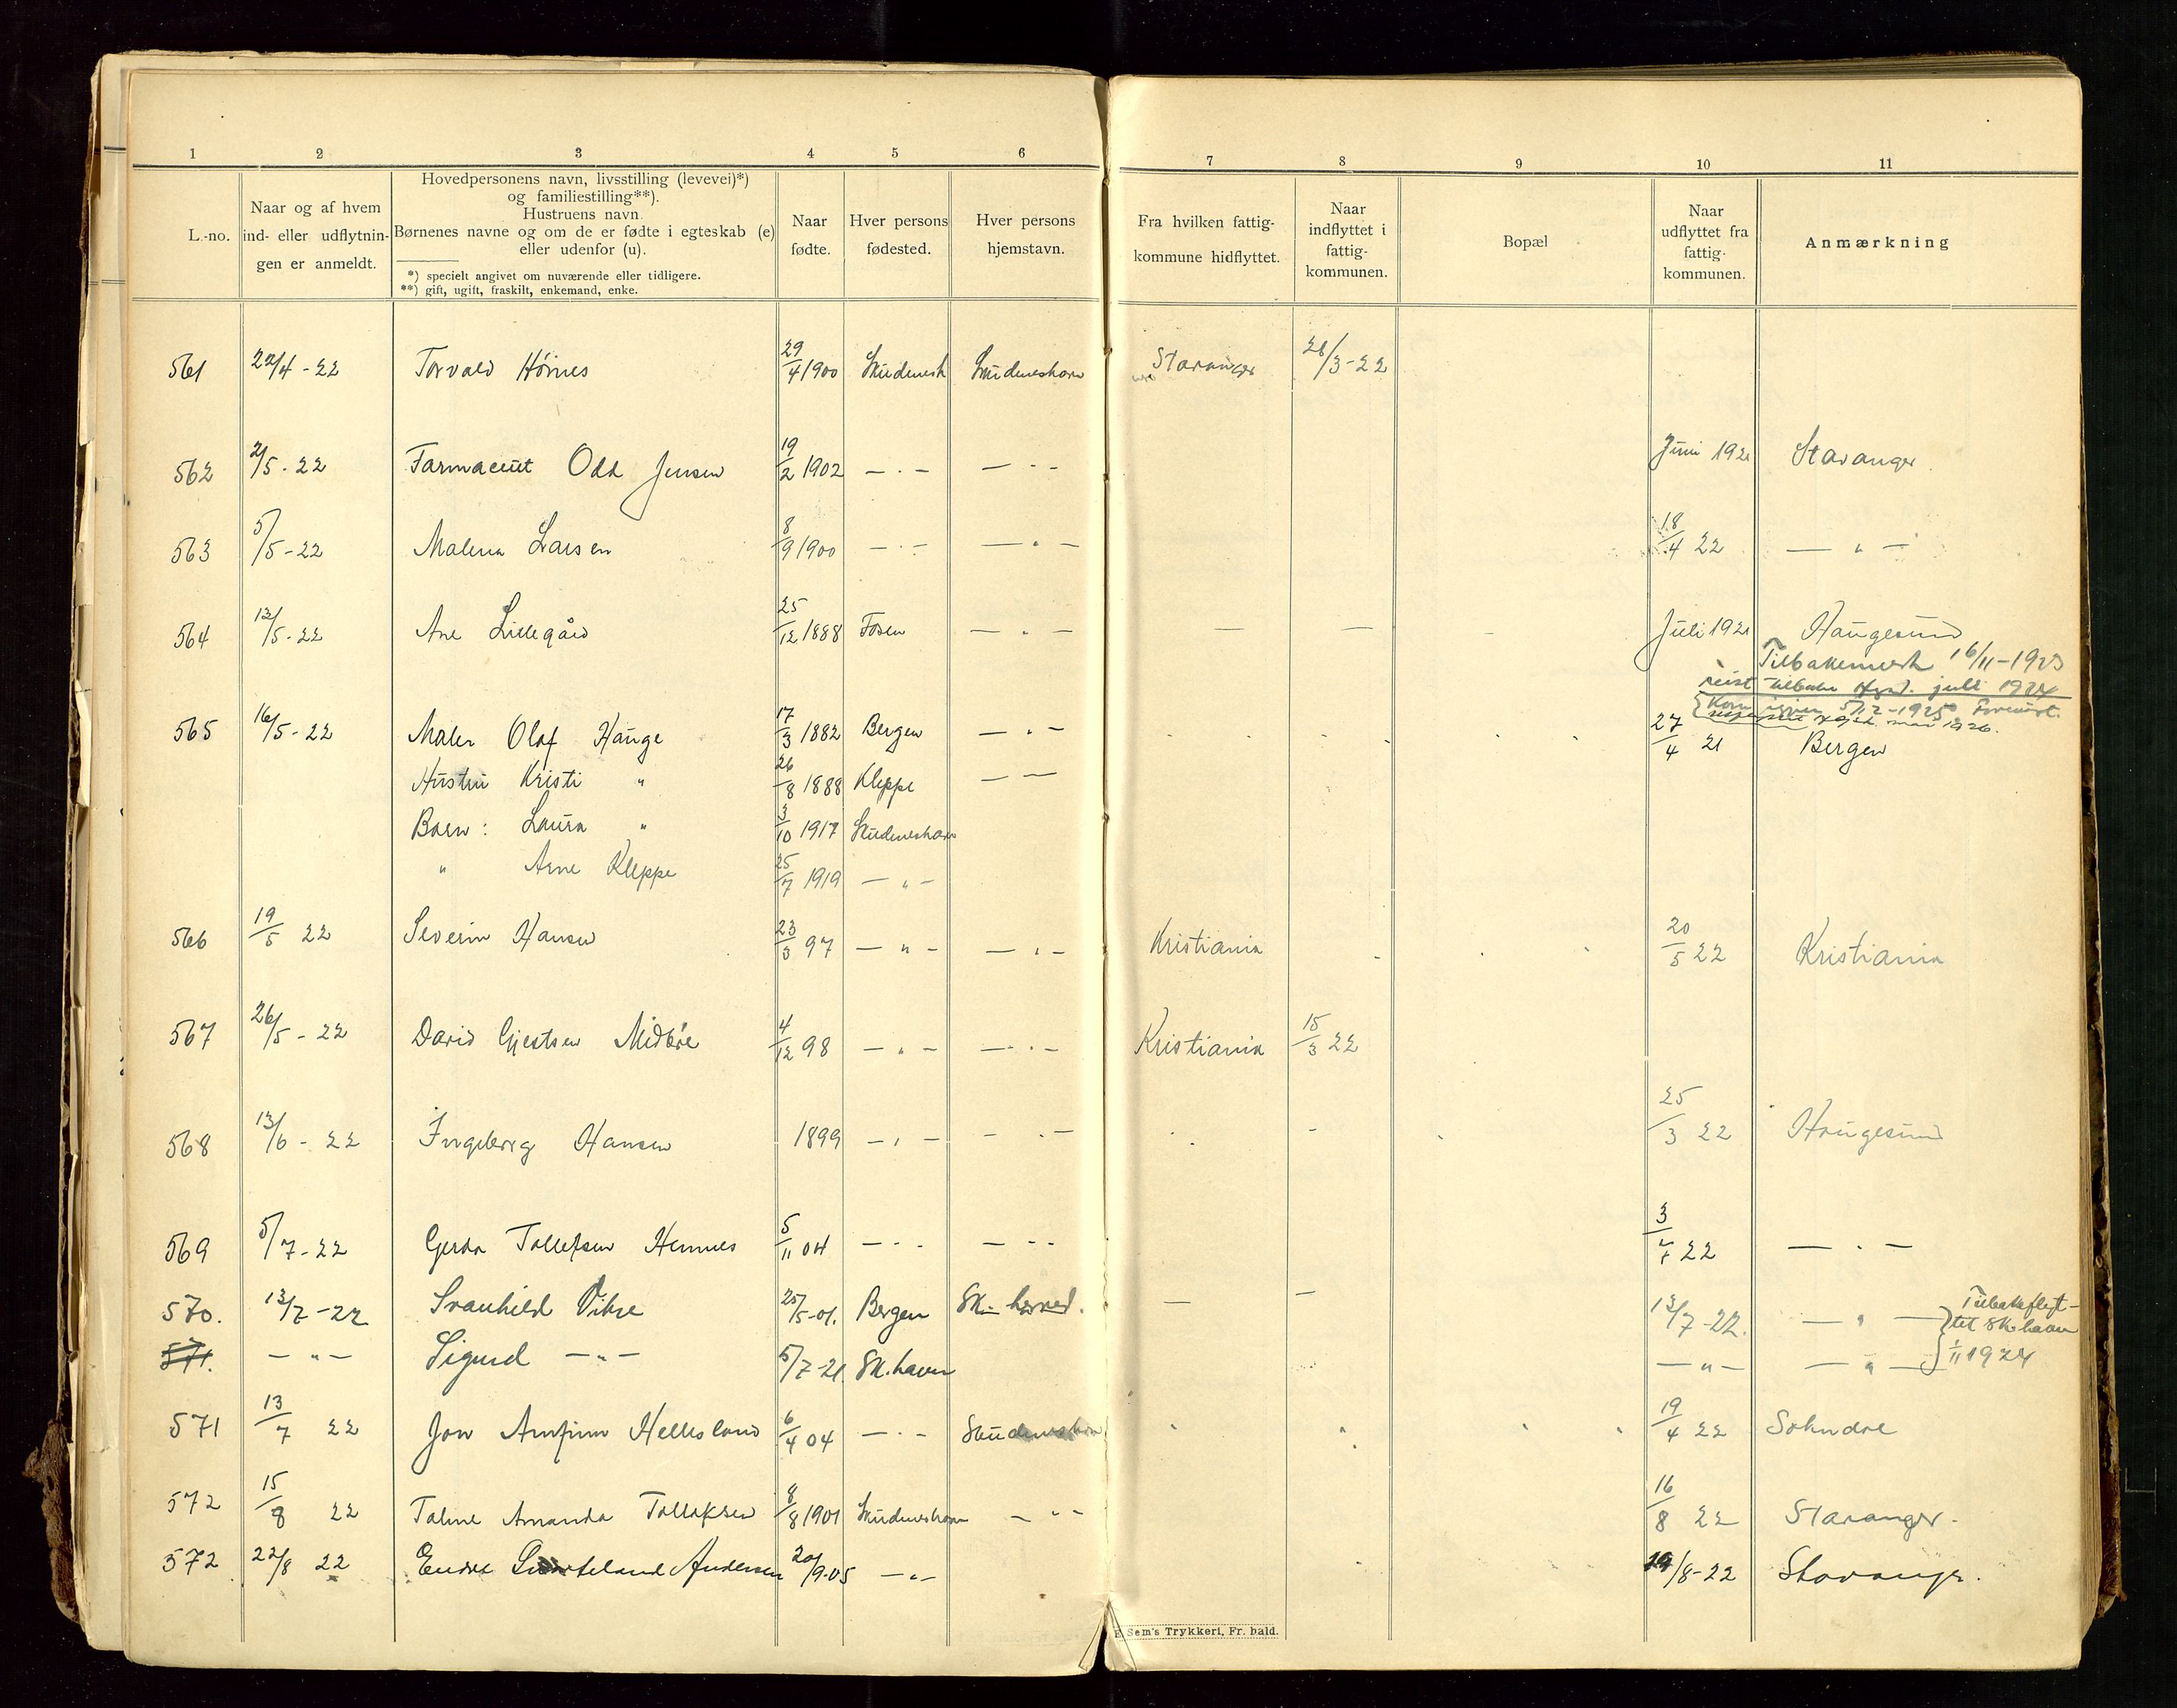 1 2 3 4 5 6 7 8 9 10 11
L.-no.
Naar og af hvem
ind- eller udflytnin-
gen er anmeldt.
Hovedpersonens navn, livsstilling (levevei)*)
og familiestilling**).
Hustruens navn.
Børnenes navne og om de er fødte i egteskab (e)
eller udenfor (u).
*) specielt angivet om nuværende eller tidligere.
**) gift, ugift, fraskilt, enkemand, enke.
Naar
fødte.
Hver persons
fødested.
Hver persons
hjemstavn.
Fra hvilken fattig-
kommune hidflyttet.
Naar
indflyttet i
fattig-
kommunen.
Bopæl
Naar
udflyttet fra
fattig-
kommunen.
Anmærkning
561 22/4 - 22 Torvald Hörnes 29/4 1900 Skudenesh Skudeneshavn Stavanger 28/3 - 22
562 2/5 - 22 Farmaceut Odd Jensen 19/2 1902 — " — — " — Juni 1921 Stavanger
563 5/5 - 22 Malena Larsen 8/9 1900 — " — — " — 18/4 22 — " —
564 12/5 - 22 Ane Lillegård 25/12 1888 Fosen — " — — — - Juli 1921 Haugesund
Tilbakemeldt 16/11 - 1923
reist tilbake Hgsd. juli 1924
Kom igjen 5/12 - 1925
Hgsd. mai 1926.
565 16/5 - 22 Maler Olaf Hauge 17/3 1882 Bergen — " — 27/4 21 Bergen
Hustru Kristi " 26/8 1888 Kleppe — —
Barn: Laura " 3/10 1917 Skudeneshavn
" Arne Kleppe 25/7 1919 — " —
566 19/5 22 Severin Hansen 23/3 97 — " — — " — Kristiania 20/5 22 Kristiania
567 26/5 - 22 David Gjestsen Midböe 4/12 98 — " — — " — Kristiania 15/3 22
568 13/6 - 22 Ingeborg Hansen 1899 — " — — " — 25/3 22 Haugesund
569 5/7 - 22 Gerda Tollefsen Hemnes 5/11 04 — " — — " — 3/7 22 — " —
570. 13/7 - 22 Svanhild Vikse 25/5 - 01. Bergen Sk. herred. — — 13/7 - 22. — " — Tilbakeflyt-
tet Sk.havn
571. — " — Sigurd — " — 5/7 - 21. Sk.havn — " — — " — 1/11 1924
571 13/7 22 Jon Arnfinn Hellesland 6/4 04 — " — Skudeneshavn 19/4 22 Sokndal
572 15/8 22 Taline Amanda Tollaksen 8/8 1901 Skudeneshavn — " — 16/8 22 Stavanger.
572 22/8 22 Endre Andersen 20/9 - 05 — " — 19/8 - 22 Stavanger.
E. Sem's Trykkeri, Fr. hald.